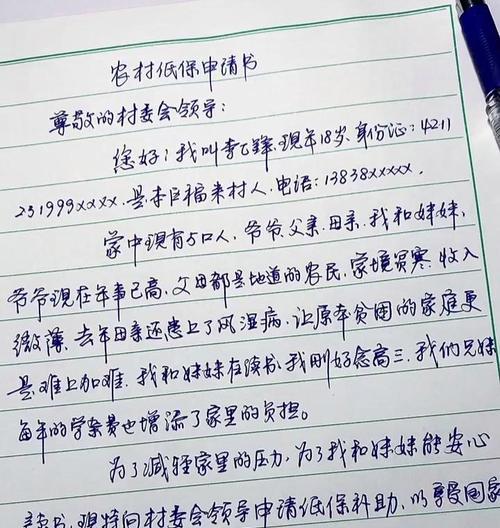 农村低保申请书
尊敬的村委会领导：
您好！我叫李乙锋，现年18岁，身份证：4211
231999xxxx，是本巨福来村人，电话：13838xxxxx，
家中现有5口人，爷爷，父亲，母亲，我和妹妹，
爷爷现在年事已高，父母都是地道的农民，家境贫寒，收入
微薄，去年母亲还患上了风湿病，让原本贫困的家庭更
是难上加难，我和妹妹在读书，我刚好念高三，我们兄妹
每年的学杂费也增添了家里的负担。
为了减轻家里的压力，为了我和妹妹能安心
读书，现特向村委会领导申请低保补助，以享受国家